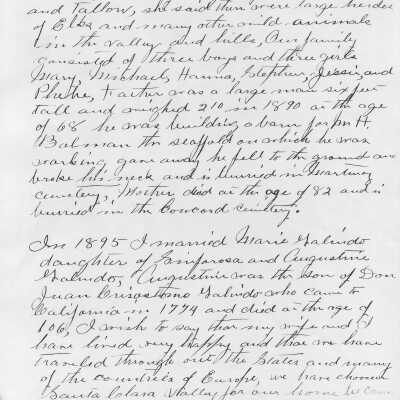 and Tallow, she said there were large herds
of Elks and many other wild animals
in the valley and hills, Our family
consistd of three boys and three girls
Mary, Michael, Hanna, Stephen, Jessie, and
Phebe, Father was a large man six feet
tall and weighed 210 in 1890 at the age
of 68 he was building a barn for Mr H.
Balman the scaffold on which he was
working gave away he fell to the ground and
broke his neck and is burried in Martinez
cemetery, Mother died at the age of 82 and is
burried in the Concord cemetery.
In 1895 I married Marie Galindo
daughter of and Augustine
Galindo, Augustine was the son of Don
Juan Crisostomo Galindo who came to
California in 1774 and died at the age of
106, I wish to say that my wife and I
have lived very happy and that we have
traveled through out the States and many
of the countries of Europe, we have choosen
Santa Clara Valley for our home